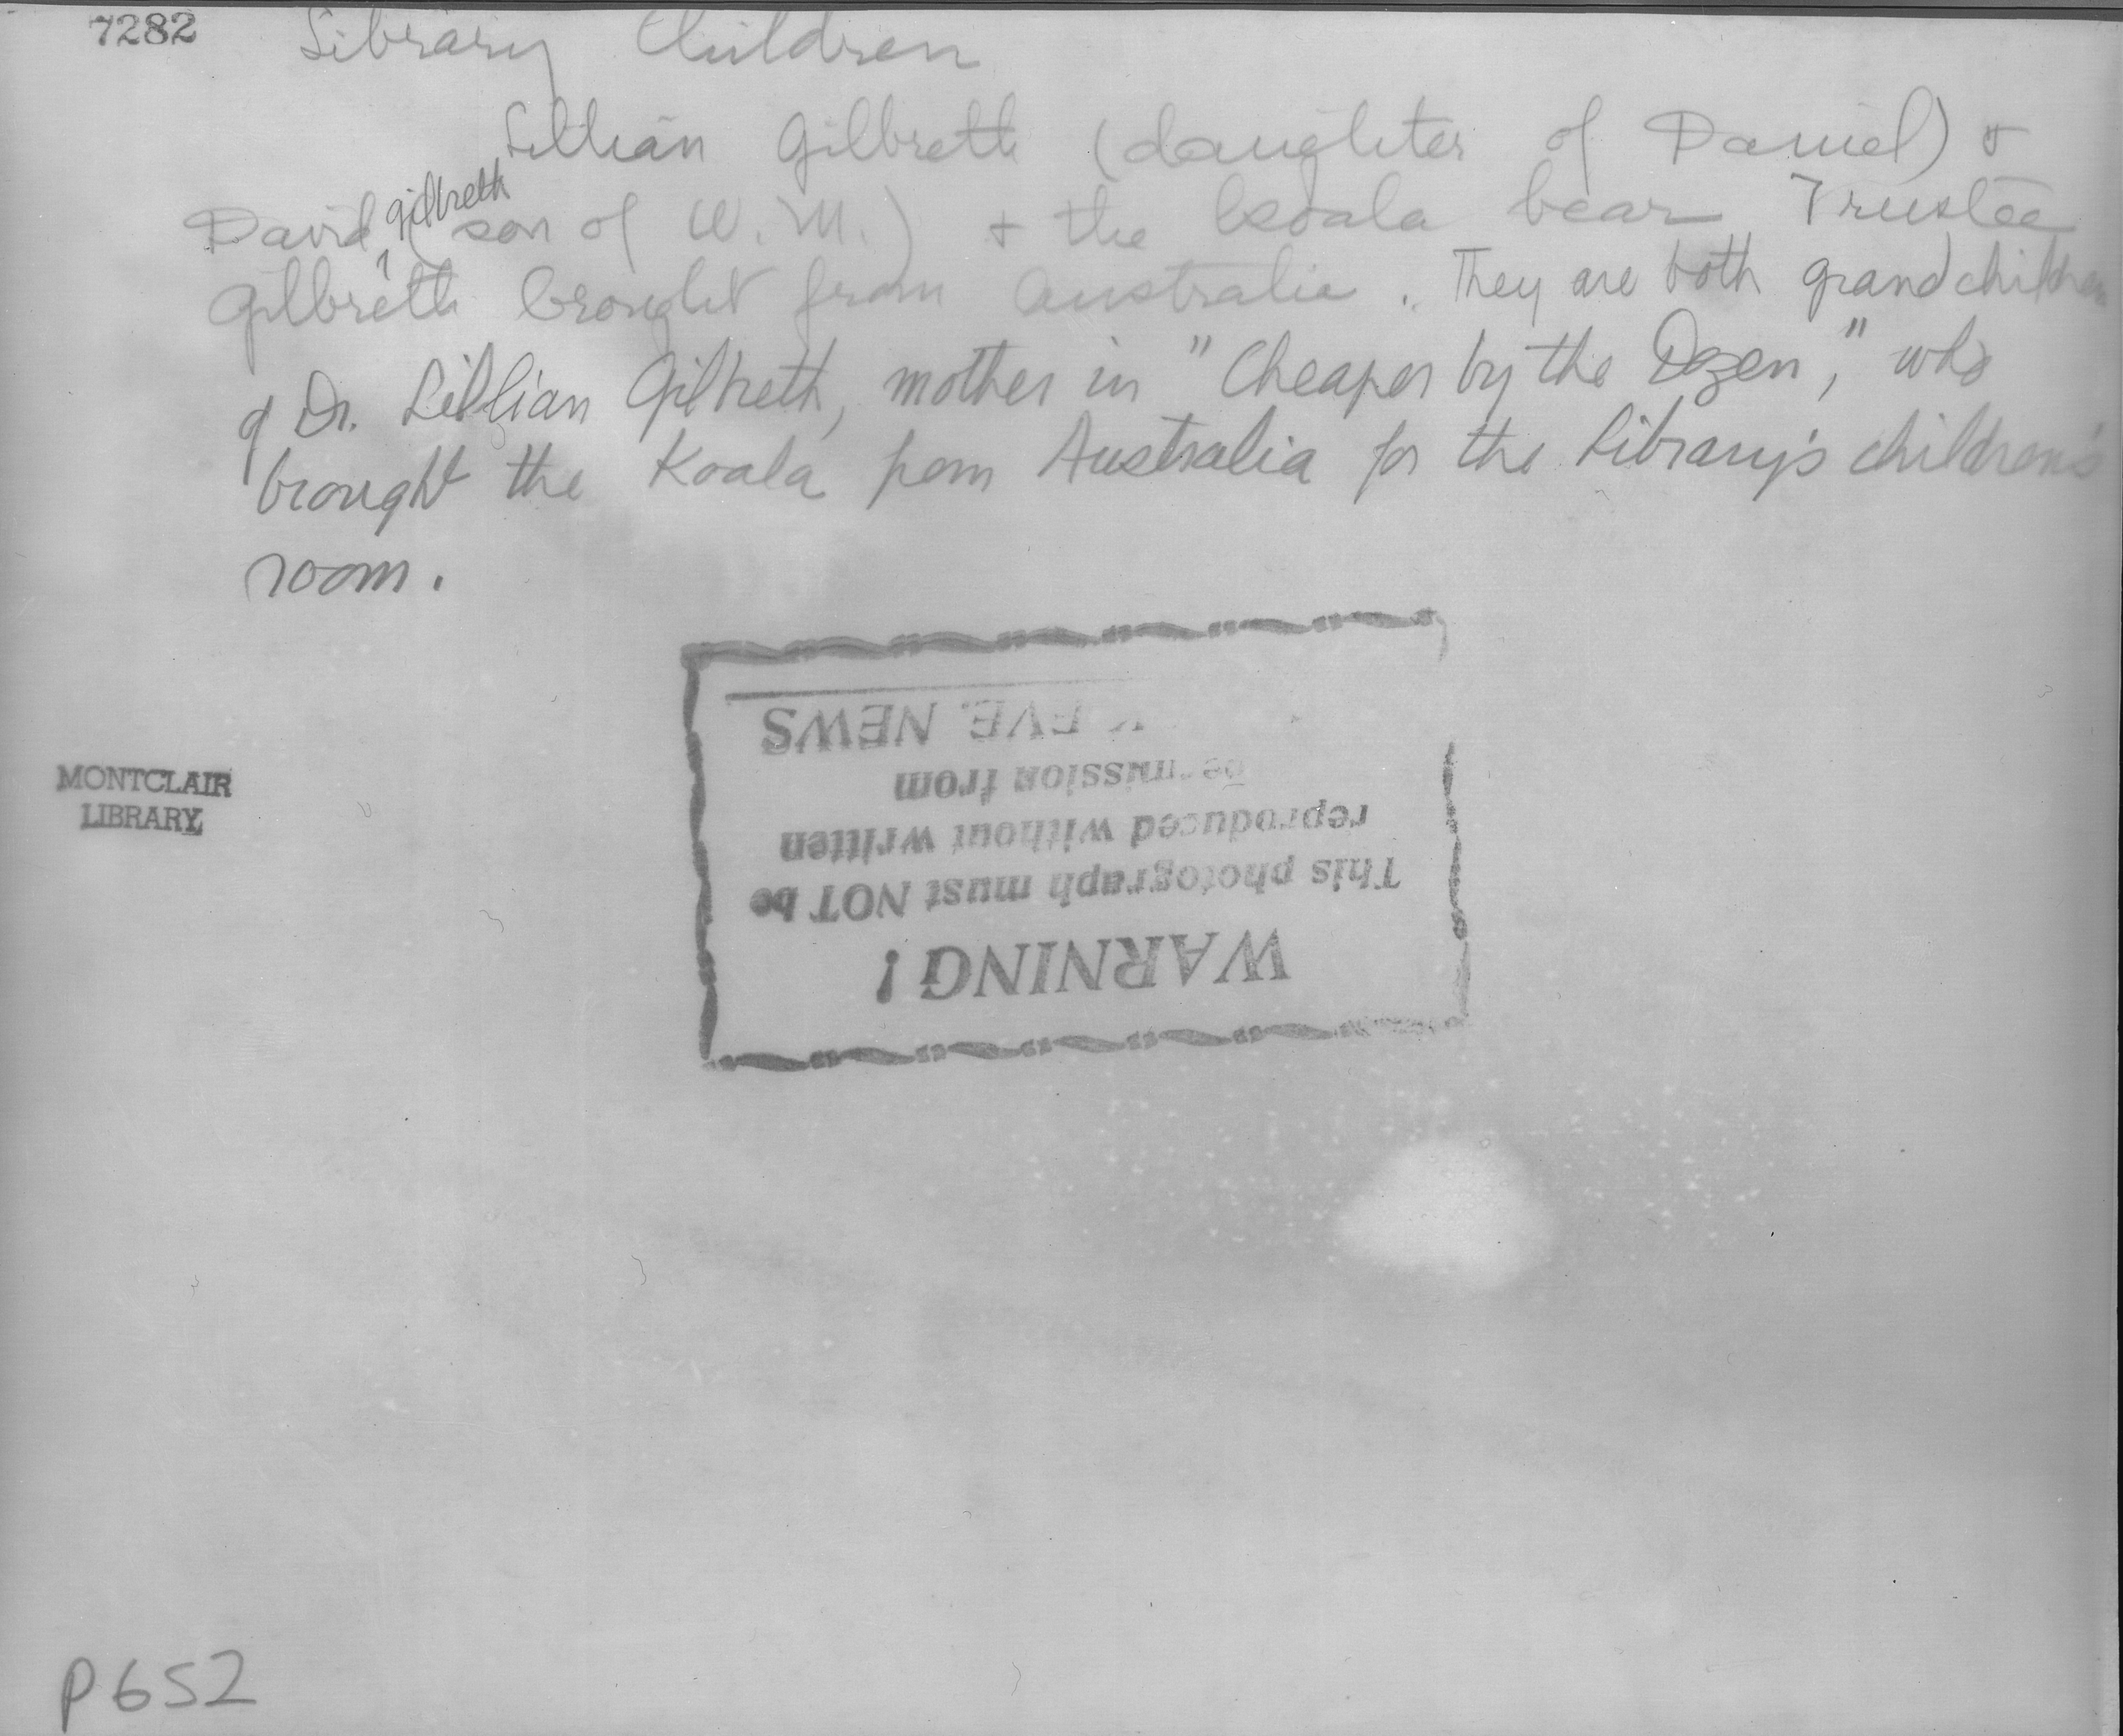 7282
Library Children
Lillian Gilbreth (daughter of Daniel) &
David Gilbreth (son of W. M.) & the koala bear Trustee
Gilbreth brought from Australia. They are both grandchildren
of Dr. Lillian Gilbreth, mother in "Cheaper by the Dozen," who
brought the Koala from Australia for the Library's children's
room.
WARNING!
This photograph must NOT be
reproduced without written
permission from
EVE. NEWS
MONTCLAIR
LIBRARY
P652